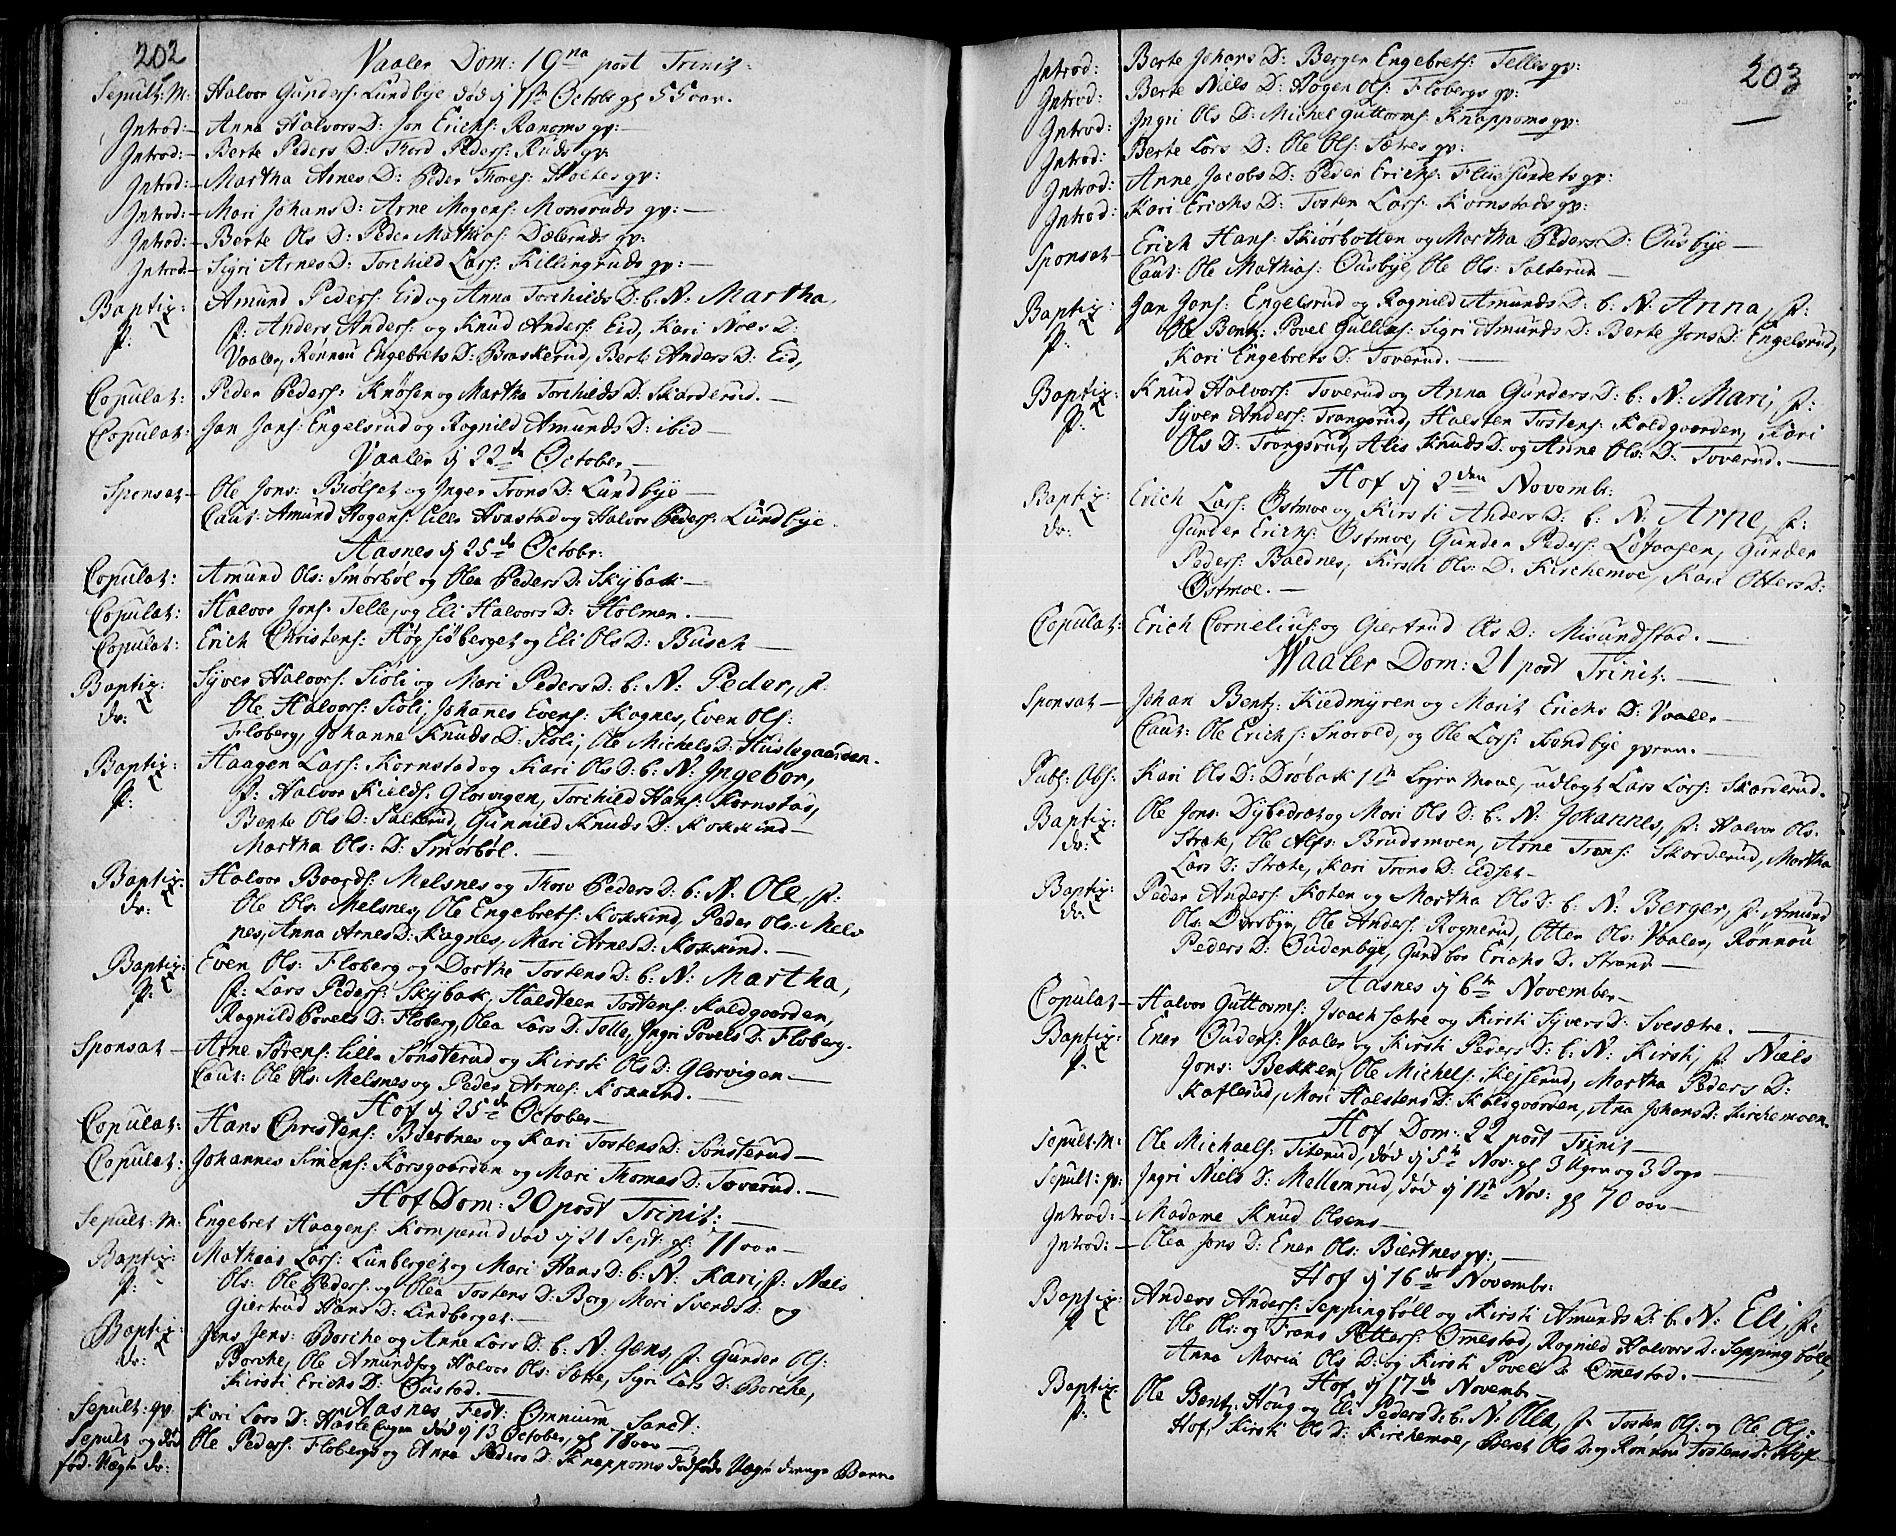 202
Vaaler Dom: 19na post Trinit:
Sepult: M: Halvor Gunders: Lundbye død 11te Octobr gl 55 aar.
Introd: Anna Halvors D: Jon Erichs: Ranoms qv:
Introd: Berte Peders D: Thord Peders: Ruds qv:
Introd: Martha Arnes D: Peder Thores: Holtes qv:
Introd: Mari Johans D: Arne Mogens: Monsruds qv:
Introd: Berte Ols D: Peder Mathias: Dæleruds qv:
Introd: Sigri Arnes D: Torchild Lars: Killingruds qv:
Baptiz: Amund Peders: Eid og Anna Torchilds D: b: N: Martha,
p: f: Anders Anders: og Knud Anders: Eid, Kari Noes D:
Vaaler, Rønnou Engebrets D: Braskerud, Bert: Anders D: Eid,
Copulat: Peder Peders: Knøsen og Martha Torchilds D: Skarderud.
Copulat: Jon Jons: Engelsrud og Rognild Amunds D: ibid
Vaaler 22de October
Sponsat Ole Jons: Biølset og Inger Trons D: Lundbye
Caut: Amund Hagens: lille Hvastad og Halvor Peders: Lundbye.
Aasnes 25de Octobr:
Copulat: Amund Ols: Smørbøl og Olea Peders D: Skÿbak
Copulat: Halvor Jons: Telle, og Eli Halvors D: Holmen.
Copulat: Erich Christens: Høgsiøberget og Eli Ols D: Busch
Baptiz: Syver Halvors: Siøli og Mari Peders D: b: N: Peder, f:
dr: Ole Halvors: Siøli, Johanes Evens: Kagnes, Even Ols:
Floberg, Johanne Knuds D: Siøli, Ole Michels D: Huslegaarden.
Baptiz: Haagen Lars: Kornstad og Kari Ols D: b: N: Ingebor,
p: f: Halvor Kields: Glorvigen, Torchild Hans: Kornstad,
Bente Ols D: Salterud, Gunnild Knuds D: Kokkind
Martha Ols: D: Smørbøl.
Baptiz: Halvor Baards: Melsnes og Thore Peders D: b: N: Ole, f:
dr: Ole Ols: Melsnes, Ole Engebrets: Kokkind, Peder Ols: Mels
nes, Anna Arnes D: Kagnes, Mari Arnes D: Kokkind.
Baptiz: Even Ols: Floberg og Dorthe Tostens D: b: N: Martha,
p: f: Lars Peders: Skÿbak, Halsteen Tostens: Koldgaarden,
Rognild Povels D: Floberg, Olea Lars D: Telle, Ingri Povels D: Floberg.
Sponsat Arne Sørens: lille Sønsterud og Kirsti Ols D: Glorvigen
Caut: Ole Ols: Melsnes og Peder Arnes: Kokkind.
Hof 25de October
Copulat: Hans Christens: Biertnes og Kari Tostens D: Sønsterud
Copulat: Johannes Simens: Korsgaarden og Mari Thomas D: Toverud.
Hof Dom: 20 post Trinit:
Sepult: M: Engebret Haagens: Komperud død 21 Sept: gl: 71 aar
Baptiz: Mathias Lars: Lunberget og Mari Hans D: b: N: Kari, f: Niels
p: Ols: Ole Peders: og Olea Tostens D: Borg, Mari Svends D: og
Giertrud Hans D: Lindberget.
Baptiz: Jens Jens: Borche og Anne Lars D: b: N: Jens, f: Gunder Ols:
dr: Borche, Ole Amunds: og Halvor Ols: Sætre, Sigri Lars D: Borche,
Kirsti Erichs D: Oustad.
Aasnes Fest: Omnium Sanct:
Sepult: qv: Kari Lars D: Hasle Engen død 13 October, gl 78 aar
Sepult og død Ole Peders: Flobergs og Anna Peders D: Knappoms dødfødt Uægte drenge Barn
fød: Uægte dr:
203
Introd: Berte Johans D: Berger Engebrets: Telles qv:
Introd: Berte Niels D: Hogen Ols: Flobergs qv:
Introd: Ingri Ols D: Michel Guttorms: Knappoms qv:
Introd: Berte Lars D: Ole Ols: Sætres qv:
Introd: Anne Jacobs D: Peder Erichs: Flÿesundets qv:
Introd: Kari Erichs D: Tosten Lars: Kornstads qv:
Sponsat Erich Hans: Skiørbotten og Martha Peders D: Ousbÿe
Caut: Ole Mathias: Ousbÿe, Ole Ols: Salterud
Baptiz: Jon Jons: Engelsrud og Rognild Amunds D: b: N: Anna, f:
p: Ole Bent: Povel Gullins: Sigri Amunds D: Berte Jons D: Engelsrud,
Kari Engebrets D: Toverud.
Baptiz: Knud Halvors: Toverud og Anna Gunders D: b: N: Mari, f:
p: Syver Anders: Trangsrud, Halsten Tostens: Koldgaarden, Kari
Ols D: Trangsrud, Alis Knuds D: og Anne Ols: D: Toverud.
Hof 2den Novembr:
Baptiz: Erich Lars: Østmoe og Kirsti Anders D: b: N: Arne, f:
dr: Gunder Erichs: Østmoe, Gunder Peders: Løfaasen, Gunder
Peders: Baldnes, Kirsti Ols: D: Kirchemoe, Kari Otters D:
Østmoe.
Copulat: Erich Cornelius: og Giertrud Ols D: Misundstad.
Vaaler Dom: 21 post Trinit.
Sponsat Johan Bent: Kiedmÿren og Marit Erichs D: Vaaler
Caut: Ole Erichs: Snorold, og Ole Lars: Sundbye qvern.
Publ: Abs: Kari Ols D: Drøbak 1ste Leyer maal, udlagt Lars Lars: Skarderud.
Baptiz: Ole Jons: Dÿbedræt og Mari Ols D: b: N: Johannes, f: Halvor Ols:
dr: Stræte, Ole Alfs: Brudsmoen, Arne Trons: Skarderud, Martha
Lars D: Stræte, Kari Trons D: Eidset
Baptiz: Peder Anders: Koten og Martha Ols D: b: N: Berger, f: Amund
dr: Ols: Dørrbÿe, Ole Anders: Rognerud, Otter Ols: Vaaler, Rønnou
Peders D: Oudenbÿe, Gundbor Erichs D. Strand
Aasnes 6te November
Copulat Halvor Guttorms: Isaach sætre og Kirsti Syvers D: Svesætre.
Baptiz: Ener Oudens: Vaaler og Kirsti Peders D: b: N: Kirsti, f: Niels
p: Jons: Bekken, Ole Michels: Kejserud, Martha Peders D:
Kaflerud, Mari Halstens D: Koldgaarden, Ana Johans D: Kirchemoen.
Hof Dom: 22 post Trinit
Sepult: M: Ole Michaels: Titerud, død 5te Nov: gl 3 Uger og 3 Dage
Sepult: qv: Ingri Niels D: Mellemrud, død 11te Nov: gl 70 aar
Introd: Madame Knud Olsens
Introd: Olea Jons D: Ener Ols: Biertnes qv:
Hof 16de Novembr:
Baptiz: Anders Anders: Seppingbøll og Kirsti Amunds D: b: N: Eli, f:
p: Ole Ols: og Frans Petters: Omestad, Rognild Halvors D: Seppingbøll,
Anna Maria Ols D: og Kirsti Povels D: Omestad.
Hof 17de Novembr
Baptiz: Ole Bent: Houg og Eli Peders D: b: N: Olea, f: Tosten Ols: og Ole Ols:
p: Hof, Kirsti Ols D: Kirchemoe, Beret Ols D: og Rønnou Tostens D: Hof